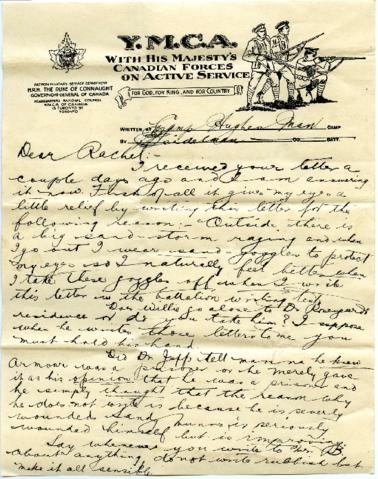 Y.M.C.A.
WITH HIS MAJESTY'S
CANADIAN FORCES
ON ACTIVE SERVICE
FOR GOD, FOR KING, AND FOR COUNTRY
PATRON MILITARY SERVICE DEPARTMENT
H.R.H. THE DUKE OF CONNAUGHT
GOVERNOR-GENERAL OF CANADA
HEADQUARTERS NATIONAL COUNCIL
Y.M.C.A. OF CANADA
TORONTO
WRITTEN AT Camp Hughes Man CAMP
BY CO. BATT.
Dear Rachel:-
I received your letter a
couple days ago and I am answering
it now. First of all it gives my eyes a
little relief by writing this letter for the
following reason:- Outside there is
a big sand-storm raging and when
I go out I wear sand goggles to protect
my eyes so I naturally feel better when
I take these goggles off when I write
this letter in the battalion writing tent.
Does Willie go alone to Dr
residence or do you take him? I suppose
when he writes those letters to me you
must hold his hand.
Did Dr. Jeff tell man he knew
Armour was a prisoner or he merely gave
it as his opinion that he was a prisoner and
he simply thought that the reason why
he does not write is because he is severely
wounded. Sandy Munro is seriously
wounded himself but is improving.
Say whenever you write to Mr. B
about anything do not write rubbish but
make it all sensible